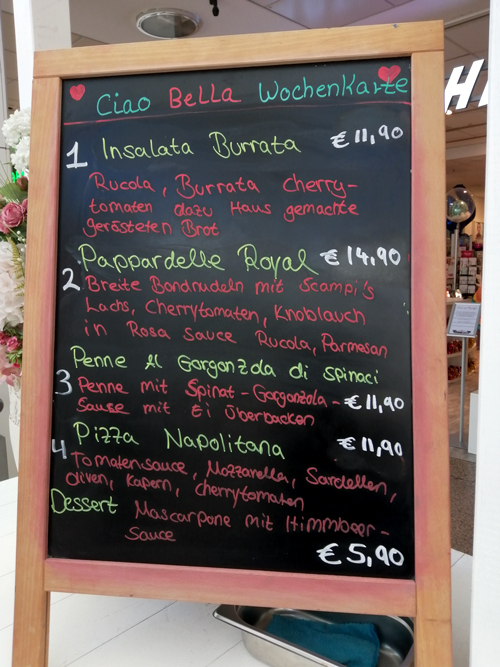 Ciao Bella WochenKarte
1 Insalata Burrata €11,90
Rucola, Burrata cherry-
tomaten dazu Haus gemachte
gerösteten Brot
Pappardelle Royal €14,90
2 Breite Bandnudeln mit Scampi's
Lachs, Cherrytomaten, Knoblauch
in Rosa Sauce Rucola, Parmesan
Penne Al Gorgonzola di spinaci
3 Penne mit Spinat-Gorgonzola- €11,90
Sause mit Ei überbacken
4 Pizza Napolitana €11,90
Tomatensauce, Mozzarella, Sardellen,
oliven, kapern, cherrytomaten
Dessert Mascarpone mit Himmbeer-
Sauce
€5,90